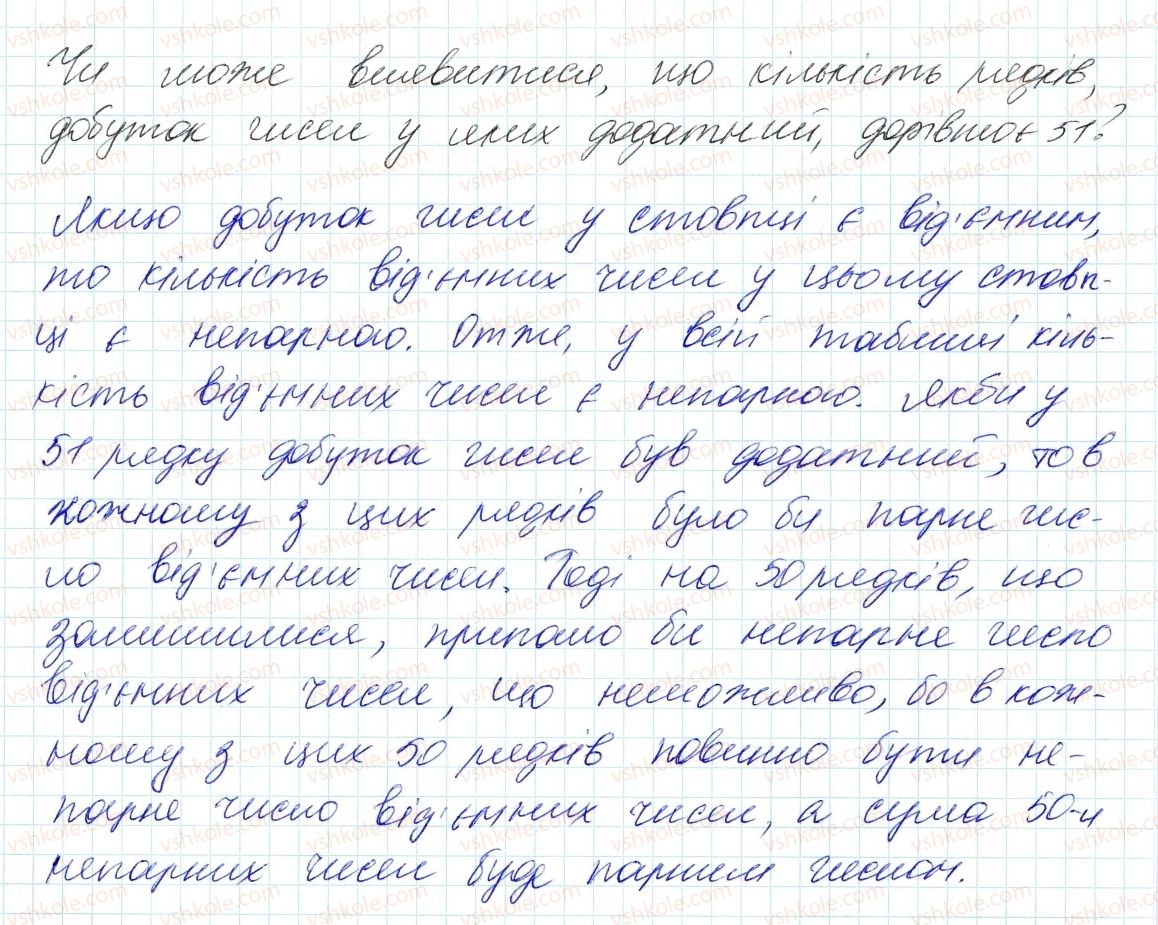 Чи може виявитися, що кількість рядків,
добуток чисел у яких додатний, дорівнює 51?
Якщо добуток чисел у стовпці є від'ємним,
то кількість від'ємних чисел у цьому стовп-
ці є непарною. Отже, у всій таблиці кіль-
кість від'ємних чисел є непарною. Якби у
51 рядку добуток чисел був додатний, то в
кожному з цих рядків було би парне чис-
ло від'ємних чисел. Тоді на 50 рядків, що
залишилися, припало би непарне число
від'ємних чисел, що неможливо, бо в кож-
ному з цих 50 рядків повинно бути не-
парне число від'ємних чисел, а сума 50-и
непарних чисел буде парним числом.